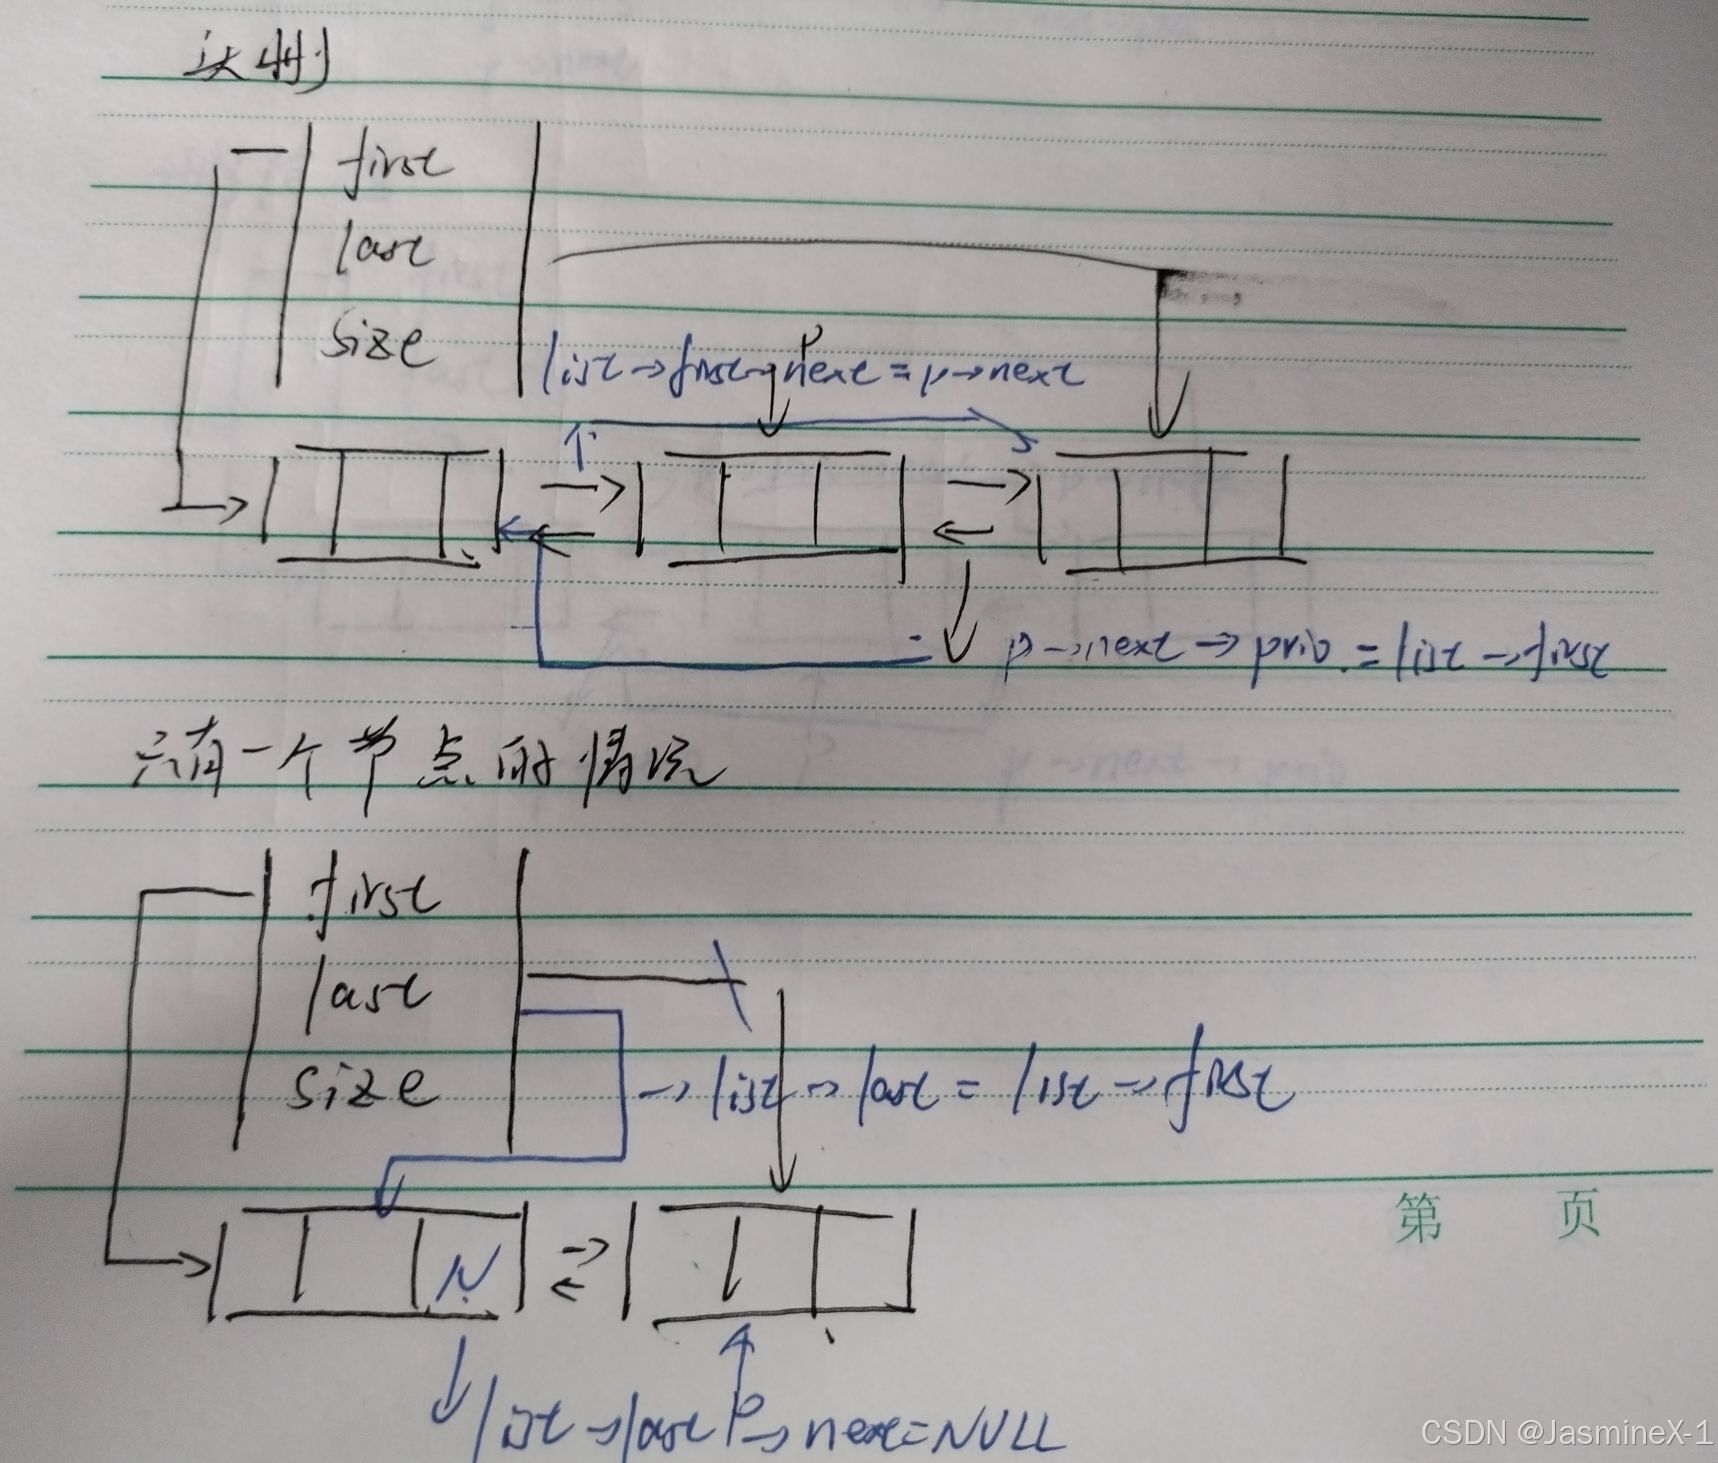 头删
first
last
size
P
list→first→next=p→next
p→next→prio.=list→first
只有一个节点的情况
first
last
size
→list→last=list→first
N
第 页
P
list→last→next=NULL
CSDN @JasmineX-1